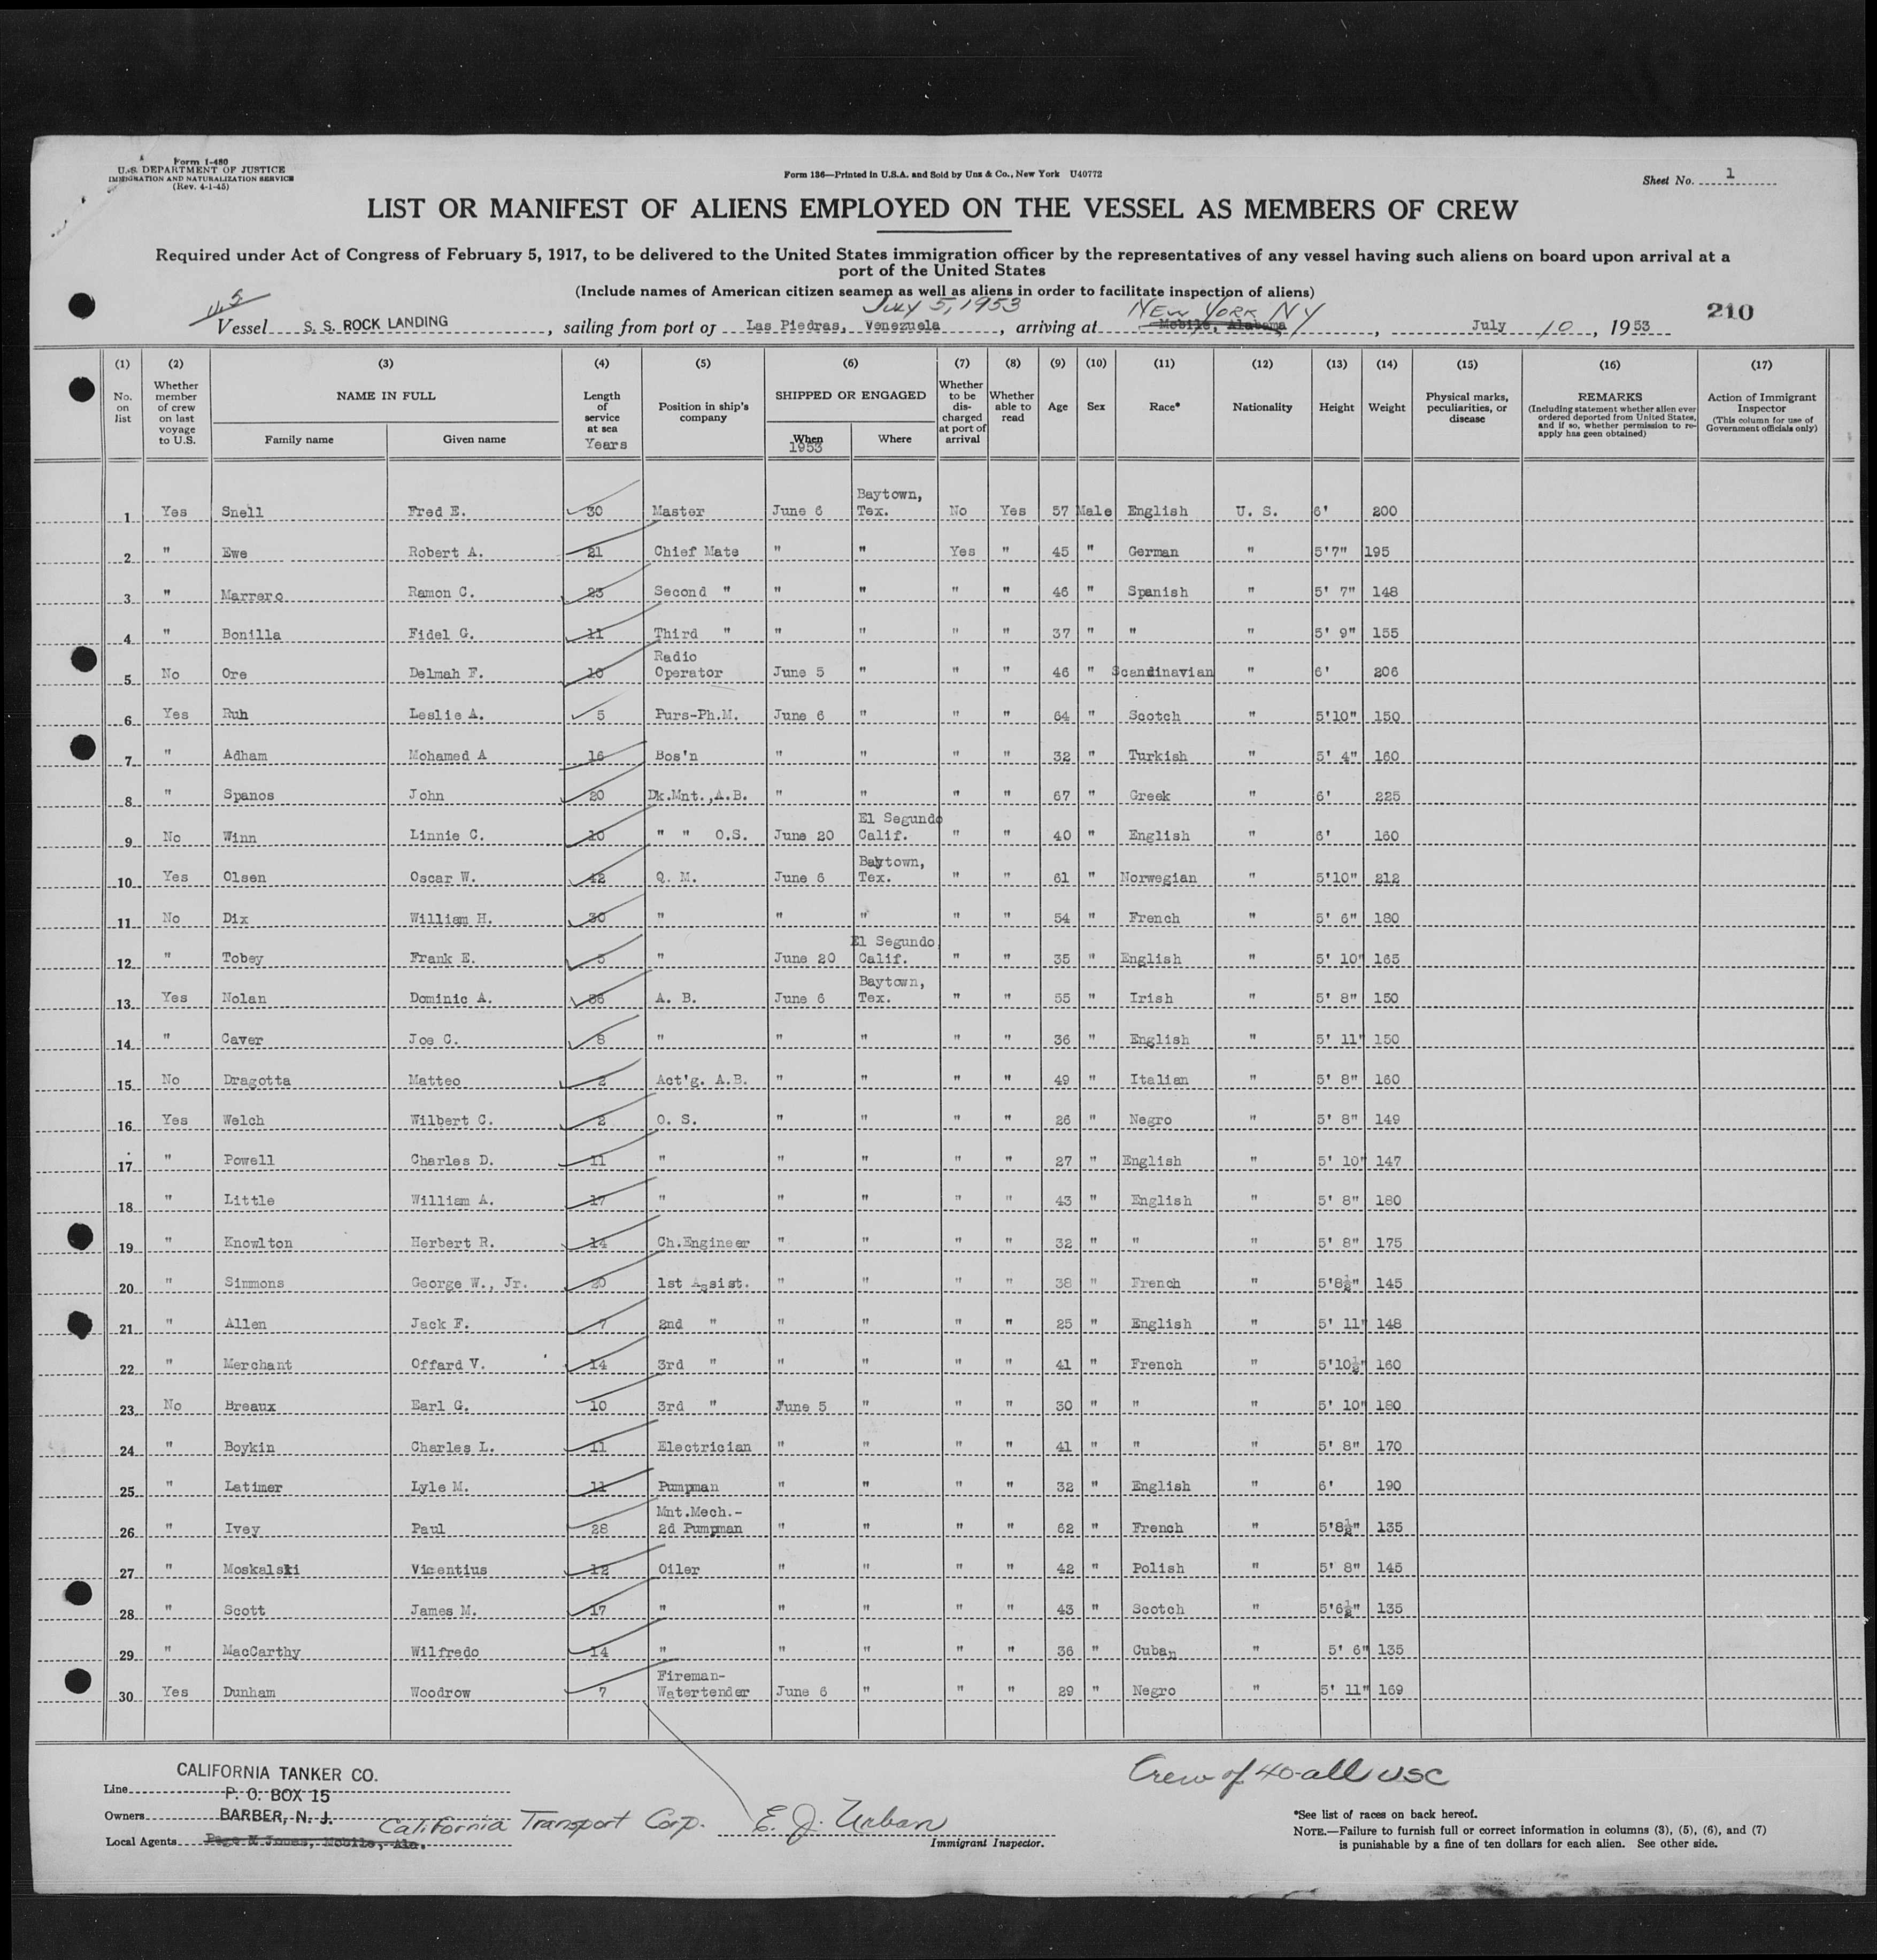 Form I-480
U.S. DEPARTMENT OF JUSTICE
IMMIGRATION AND NATURALIZATION SERVICE
(Rev. 4-1-45)
Form 136—Printed in U.S.A. and Sold by Unz & Co., New York U40772
Sheet No. 1
LIST OR MANIFEST OF ALIENS EMPLOYED ON THE VESSEL AS MEMBERS OF CREW
Required under Act of Congress of February 5, 1917, to be delivered to the United States immigration officer by the representatives of any vessel having such aliens on board upon arrival at a
port of the United States
(Include names of American citizen seamen as well as aliens in order to facilitate inspection of aliens)
US July 5, 1953 NEW YORK NY 210
Vessel S. S. ROCK LANDING, sailing from port of Las Piedras, Venezuela, arriving at Mobile, Alabama, July 10, 1953
(1) (2) (3) (4) (5) (6) (7) (8) (9) (10) (11) (12) (13) (14) (15) (16) (17)
No. on list
Whether member of crew on last voyage to U.S.
NAME IN FULL
Family name Given name
Length of service at sea Years
Position in ship's company
SHIPPED OR ENGAGED
When 1953 Where
Whether to be discharged at port of arrival
Whether able to read
Age
Sex
Race*
Nationality
Height
Weight
Physical marks, peculiarities, or disease
REMARKS
(Including statement whether alien ever ordered deported from United States, and if so, whether permission to re-apply has geen obtained)
Action of Immigrant Inspector
(This column for use of Government officials only)
1 Yes Snell Fred E. 30 Master June 6 Baytown, Tex. No Yes 57 Male English U. S. 6' 200
2 " Ewe Robert A. 21 Chief Mate " " Yes " 45 " German " 5'7" 195
3 " Marrero Ramon C. 23 Second " " " " " 46 " Spanish " 5' 7" 148
4 " Bonilla Fidel G. 11 Third " " " " " 37 " " " 5' 9" 155
5 No Ore Delmah F. 10 Radio Operator June 5 " " " 46 " Scandinavian " 6' 206
6 Yes Ruh Leslie A. 5 Purs-Ph.M. June 6 " " " 64 " Scotch " 5'10" 150
7 " Adham Mohamed A 16 Bos'n " " " " 32 " Turkish " 5' 4" 160
8 " Spanos John 20 Dk.Mnt.,A.B. " " " " 67 " Greek " 6' 225
9 No Winn Linnie C. 10 " " O.S. June 20 El Segundo Calif. " " 40 " English " 6' 160
10 Yes Olsen Oscar W. 42 Q. M. June 6 Baytown, Tex. " " 61 " Norwegian " 5'10" 212
11 No Dix William H. 30 " " " " " 54 " French " 5' 6" 180
12 " Tobey Frank E. 5 " June 20 El Segundo, Calif. " " 35 " English " 5' 10" 165
13 Yes Nolan Dominic A. 36 A. B. June 6 Baytown, Tex. " " 55 " Irish " 5' 8" 150
14 " Caver Joe C. 8 " " " " " 36 " English " 5' 11" 150
15 No Dragotta Matteo 2 Act'g. A.B. " " " " 49 " Italian " 5' 8" 160
16 Yes Welch Wilbert C. 2 O. S. " " " " 26 " Negro " 5' 8" 149
17 " Powell Charles D. 11 " " " " " 27 " English " 5' 10" 147
18 " Little William A. 17 " " " " " 43 " English " 5' 8" 180
19 " Knowlton Herbert R. 14 Ch.Engineer " " " " 32 " " " 5' 8" 175
20 " Simmons George W., Jr. 20 1st Assist. " " " " 38 " French " 5'8½" 145
21 " Allen Jack F. 7 2nd " " " " " 25 " English " 5' 11" 148
22 " Merchant Offard V. 14 3rd " " " " " 41 " French " 5'10½" 160
23 No Breaux Earl G. 10 3rd " June 5 " " " 30 " " " 5' 10" 180
24 " Boykin Charles L. 11 Electrician " " " " 41 " " " 5' 8" 170
25 " Latimer Lyle M. 11 Pumpman " " " " 32 " English " 6' 190
26 " Ivey Paul 28 Mnt.Mech.- 2d Pumpman " " " " 62 " French " 5'8½" 135
27 " Moskalski Vicentius 12 Oiler " " " " 42 " Polish " 5' 8" 145
28 " Scott James M. 17 " " " " " 43 " Scotch " 5'6½" 135
29 " MacCarthy Wilfredo 14 " " " " " 36 " Cuban " 5' 6" 135
30 Yes Dunham Woodrow 7 Fireman- Watertender June 6 " " " 29 " Negro " 5' 11" 169
CALIFORNIA TANKER CO.
Line P. O. BOX 15
Owners BARBER, N. J. California Transport Corp.
Local Agents Page & Jones, Mobile, Ala.
E. J. Urban
Immigrant Inspector.
Crew of 40-all USC
*See list of races on back hereof.
NOTE.—Failure to furnish full or correct information in columns (3), (5), (6), and (7)
is punishable by a fine of ten dollars for each alien. See other side.